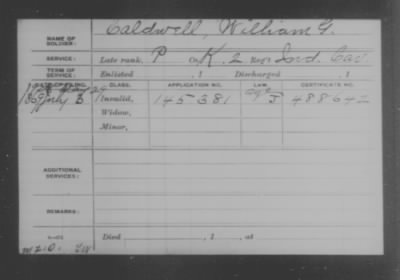 Caldwell, William G.
NAME OF SOLDIER:
SERVICE: Late rank, P Co. K, 2 Reg't Ind. Cav.
TERM OF SERVICE: Enlisted , 1 Discharged , 1
DATE OF FILING. CLASS. APPLICATION NO. LAW. CERTIFICATE NO.
July 3 Invalid, 145381 J 488642
Widow,
Minor,
ADDITIONAL SERVICES:
REMARKS:
Died , 1 , at